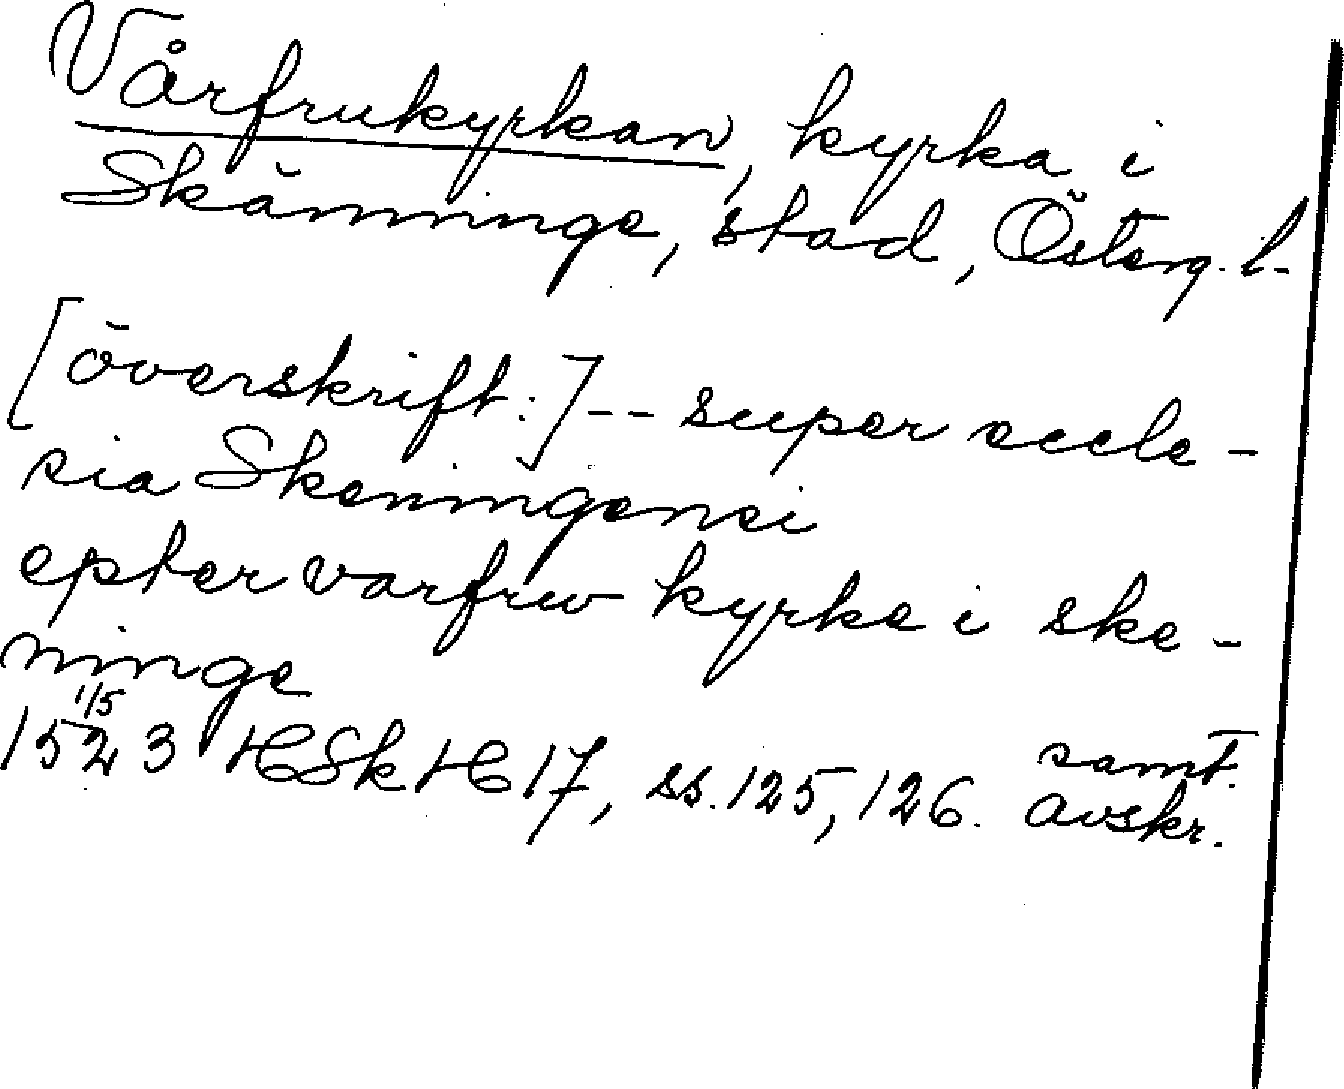 Vårfrukyrkan, kyrka i
Skänninge, stad, Österg. l.
[överskrift:] -- super eccle-
sia Skeningensi
epter varfrw kyrke i ske-
ninge
1/5
1523 HSkH 17, ss. 125, 126. samt.
avskr.